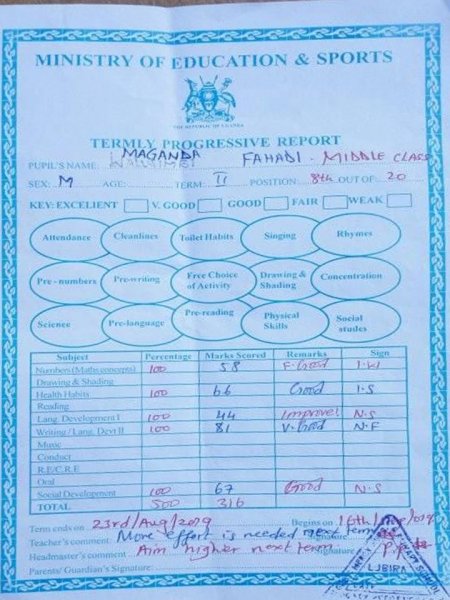 MINISTRY OF EDUCATION & SPORTS
THE REPUBLIC OF UGANDA
TERMLY PROGRESSIVE REPORT
PUPIL'S NAME: MAGANDA FAHADI. MIDDLE CLASS
SEX: M AGE: TERM: II POSITION: 8th OUT OF: 20
KEY: EXCELIENT V. GOOD GOOD FAIR WEAK
Attendance Cleanlines Toilet Habits Singing Rhymes
Pre - numbers Pre-writing Free Choice of Activity Drawing & Shading Concentration
Science Pre-language Pre-reading Physical Skills Social studes
Subject Percentage Marks Scored Remarks Sign
Numbers (Maths concepts) 100 58 F. Good
Drawing & Shading
Health Habits 100 66 Good I.S
Reading
Lang. Development I 100 44 Improve! N.S
Writing / Lang. Devt II 100 81 V. Good N.F
Music
Conduct
R.E/C.R.E
Oral
Social Development 100 67 Good N.S
TOTAL 500 316
Term ends on 23rd/Aug/2019 Begins on 16th/
Teacher's comment More effort is needed next term
Headmaster's comment Aim higher next term Signature
Parents/ Guardian's Signature:
LJBIRA